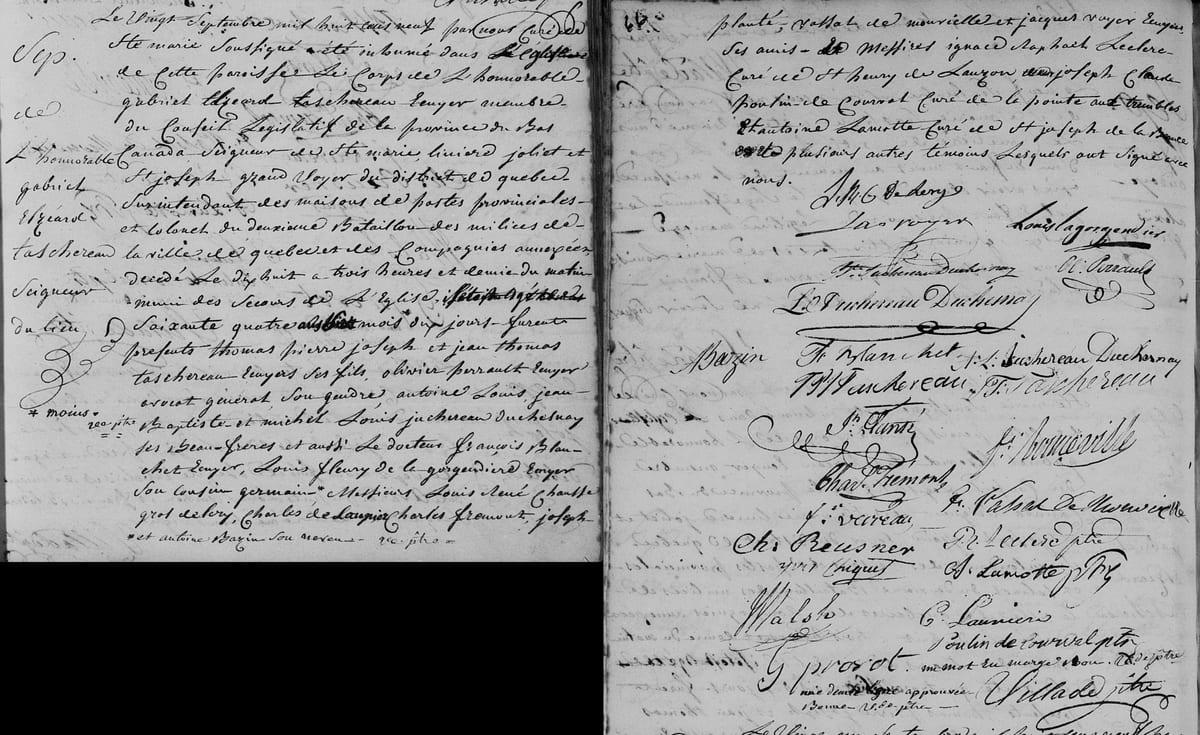 Sép.
de
L'honnorable
gabriel
Elzéard
taschereau
Seigneur
du lieu
* moins *
vce ptre
Le Vingt Septembre mil huit cens neuf par nous Curé de
Ste marie Soussigné a été inhumé dans
de Cette paroisse Le Corps de L'honnorable
gabriel Elzeard taschereau Ecuyer membre
du Conseil Legislatif de la province du Bas
Canada Seigneur de Ste marie, liniere joliet et
St joseph grand Voyer du district de quebec
Surintendant des maisons de postes provinciales
et Colonel du deuxieme Bataillon des milices de
la ville de quebec et des Compagnies annexées
decedé Le dix huit a trois heures et demie du matin
muni des Secours de L'Eglise,
Soixante quatre mois dix jours furent
presents thomas pierre joseph et jean thomas
taschereau Ecuyers Ses fils, olivier perrault Ecuyer
avocat général Son gendre, antoine Louis, jean
Baptiste et michel Louis juchereau duchesnay
ses Beau-freres et aussi Le docteur françois Blan-
chet Ecuyer, Louis fleury de la gorgendiere Ecuyer
Son cousin germain * Messieurs Louis René Chausse
gros de Lery, Charles de Launier Charles fremont, joseph
* et antoine Bazin Son neveu - vce ptre -
planté, vassal de monvielle et jacques voyer Ecuyers
Ses amis - Messires ignace Raphael Leclerc
Curé de St henry de Lauzon joseph Claude
poulin de Courval Curé de la pointe aux trembles
Et antoine Lamotte Curé de St joseph de la Beauce
et de plusieurs autres témoins Lesquels ont Signé avec
nous.
L. R. C. De Lery
Jas voyer
Louis Lagorgendier
Ol. Perrault
Juchereau Duchesnay
Juchereau Duchesnay
Bazin
F. Blanchet
J. L. Juchereau Duchesnay
TPJ Taschereau
J T Taschereau
Js. Planté
Bonneville
Chas. Frémont
Fs. Vassal De Monvielle
Fs. vareau
Ch. Reusner
R. Leclerc ptre
yves Chiquet
A. Lamotte ptre
Walsh
C. Launiere
Poulin de Courval ptre
G provot
un mot En marge bon. ptre
une demie ligne approuvée
Bonne ptre -
Villade ptre